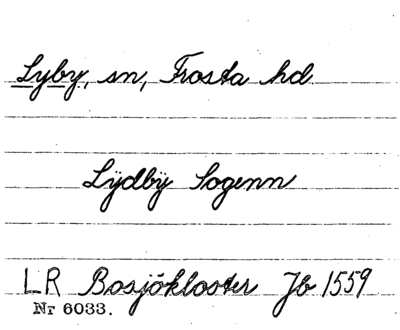 Lyby, sn, Frosta hd.
Lÿdbÿ Sogenn
LR Bosjökloster Jb 1559
Nr 6033.